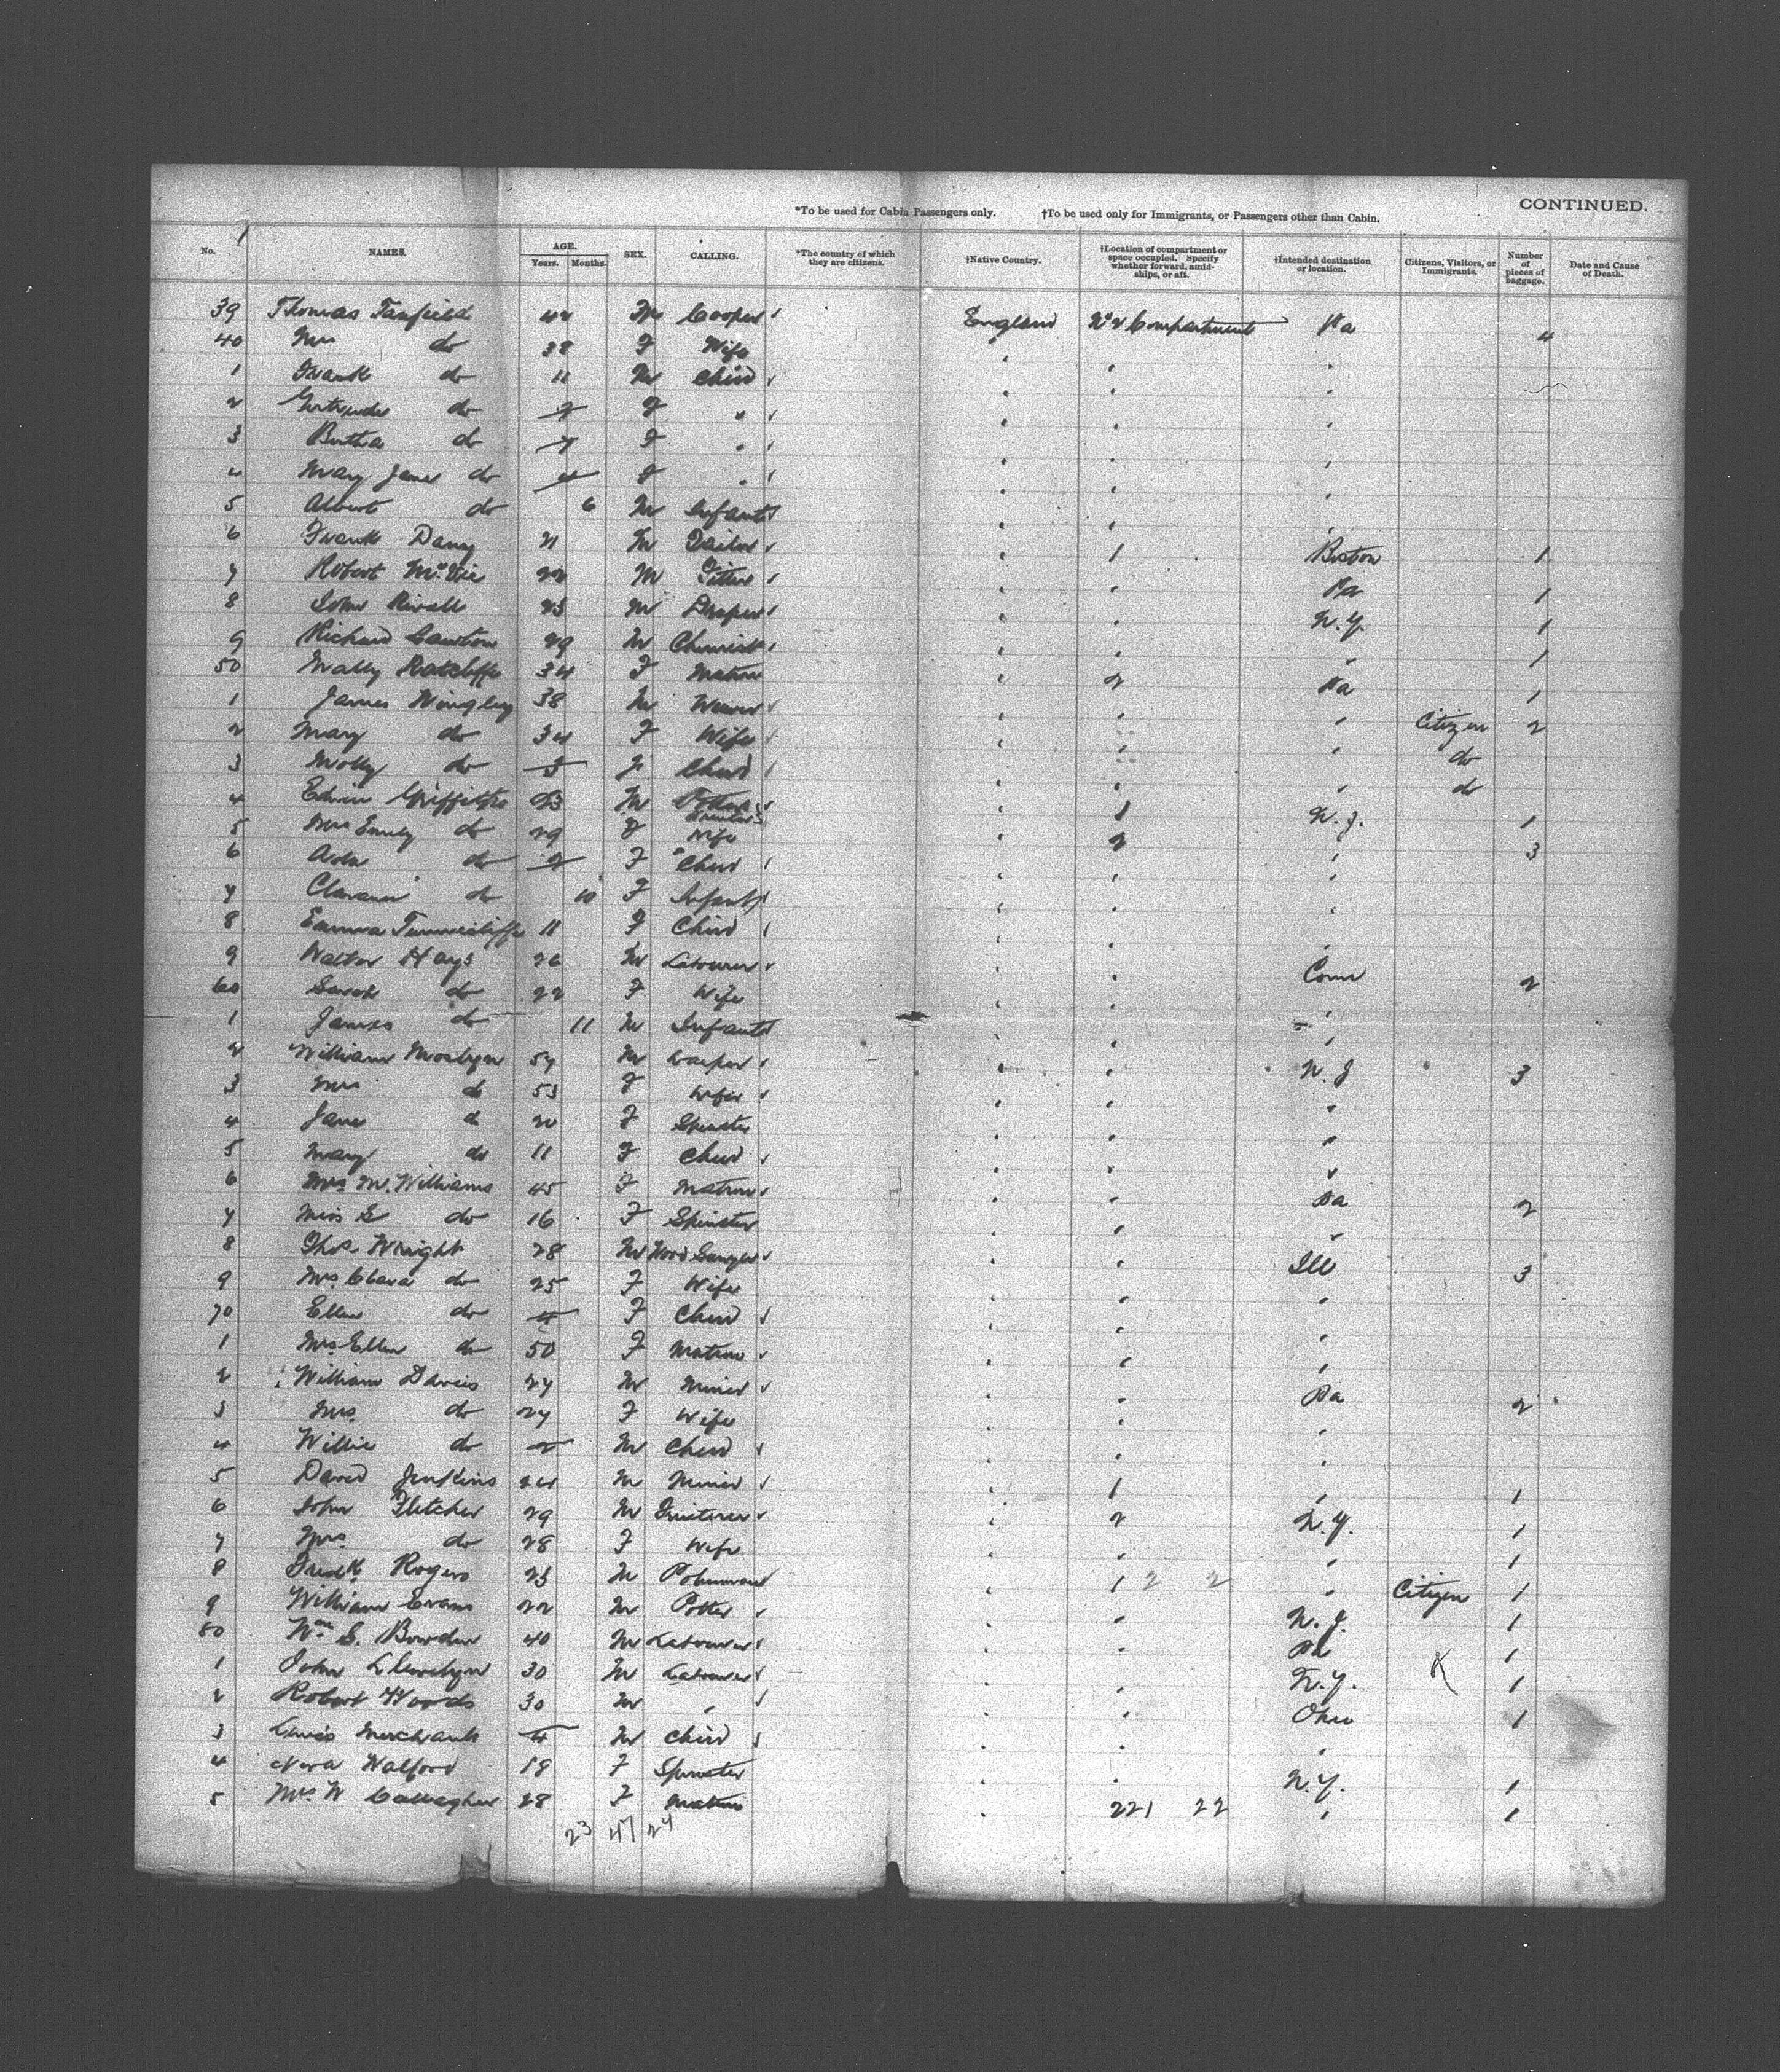 CONTINUED.
*To be used for Cabin Passengers only. †To be used only for Immigrants, or Passengers other than Cabin.
No. NAMES. AGE. Years. Months. SEX. CALLING. *The country of which they are citizens. †Native Country. †Location of compartment or space occupied. Specify whether forward, amidships, or aft. †Intended destination or location. Citizens, Visitors, or Immigrants. Number of pieces of baggage. Date and Cause of Death.
39 Thomas Fanfield 42 M Cooper England No 2 Compartment Pa 4
40 Mrs do 38 F Wife
1 Frank do 11 M Child
2 Gertrude do F "
3 Bertha do 7 F "
4 Mary Jane do 4 F "
5 Albert do 6 M Infant
6 Frank Davy 21 M Tailor 1 Boston 1
7 Robert 22 M Fitter Pa 1
8 John 23 M Draper N.Y. 1
9 Richard Cawston 29 M Chemist 1
50 Mally Ratcliffe 34 F Matron 2 Pa 1
1 James Wingley 38 M Weaver Citizen 2
2 Mary do 34 F Wife do
3 Molly do 3 F Child do
4 Edwin Griffiths 23 M Potters 1 N.J. 1
5 Mrs Emily do 29 F Wife 2 3
6 Ada do 2 F Child
7 Clarance do 10 F Infant
8 Emma Tunnicliffe 11 F Child
9 Walter Hays 26 M Labourer Conn 2
60 Sarah do 22 F Wife
1 James do 11 M Infant
2 William Mostyn 57 M N.J 3
3 Mrs do 53 F Wife
4 Jane do 20 F Spinster
5 Mary do 11 F Child
6 Mrs M. Williams 45 F Matron Pa 2
7 Miss S do 16 F Spinster
8 Thos Wright 28 M Wood Sawyer Ill 3
9 Mrs Clara do 25 F Wife
70 Ellen do 4 F Child
1 Mrs Ellen do 50 F Matron
2 William Davies 27 M Miner Pa 2
3 Mrs do 27 F Wife
4 Willie do 2 M Child
5 David Jenkins 24 M Miner 1 1
6 John Fletcher 29 M Fruiterer 2 N.Y. 1
7 Mrs do 28 F Wife 1
8 Fredk Rogers 23 M Policeman 1 2 2 Citizen 1
9 William Evans 22 M Potter N.J. 1
80 Wm S. Bowden 40 M Labourer Pa 1
1 John Llewelyn 30 M Labourer N.Y. 1
2 Robert Woods 30 M " Ohio 1
3 Lewis Merchant 4 M Child
4 Nora Walford 18 F Spinster N.Y. 1
5 Mrs W Callagher 28 F Matron 221 22 1
23 47 24